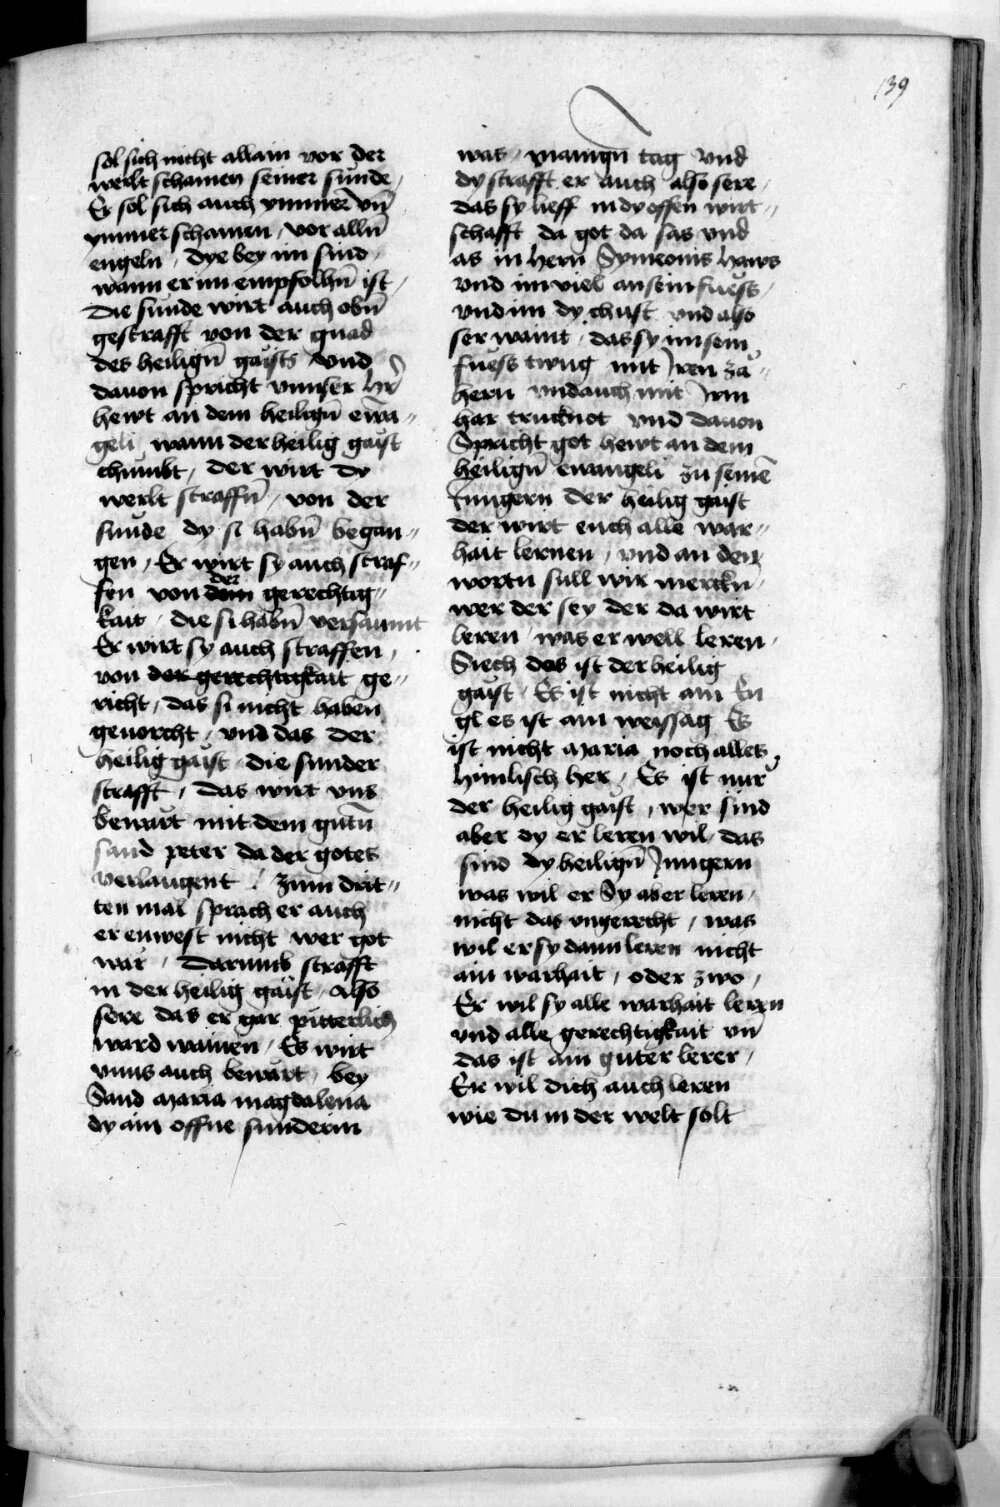 139
sol sich nicht allain vor der
werlt schamen seiner sunde,
Er sol sich auch ymmer vn̄
ymmer schamen, vor alln̄
engeln, dye bey im sind,
wann er im empfolhn̄ ist,
Die sunde wirt auch obn̄
gestrafft von der gnad
des heilign̄ gaists Vnd
dauon spricht vnnser hr̄
hewt an dem heilign̄ ewa〃
geli, wann der heilig gaist
chumbt, der wirt dy
werlt straffn̄, von der
sunde dy si habn̄ began〃
gen, Er wirt sy auch straf〃
fen von der gerechtig〃
kait, die si habn̄ versaumt
Er wirt sy auch straffen,
von der gerechtigkait ge〃
richt, das si nicht haben
geuorcht, vnd das der
heilig gaist die sunder
strafft, das wirt vns
bewart mit dem gutn̄
sand peter da der gotes
verlaugent, zum drit〃
ten mal sprach er auch
er enwest nicht wer got
war, Darumb strafft
in der heilig gaist, Also
sere das er gar pitterlich
ward wainen, Es wirt
vnns auch bewart, bey
Sand Maria magdalena
dy ain offne sunderin
was, manign̄ tag vnd
dy strafft er auch also sere,
das sy lieff in dy offen wirt〃
schafft da got da sas vnd
as in hern Symeonis haws
vnd im viel an sein fuess,
vnd im dy chust vnd also
ser waint, das sy im sein
fuess twug mit Jren zä〃
hern vnd auch mit Jrm
har trucknot vnd dauon
Spricht got hewt an dem
heilign̄ ewangeli zu seinē
Jungern der heilig gaist
der wirt euch alle war〃
hait lernen, vnd an den
wortn sull wir merckn,
wer der sey der da wirt
leren, was er well leren,
Siech das ist der heilig
gaist, Es ist nicht ain En
gl es ist ain weissag Es
ist nicht Maria noch alles
himlisch her, Es ist nur
der heilig gaist, wer sind
aber dy er leren wil, das
sind dy heilign̄ Jungern
was wil er Sy aber leren,
nicht das vngerecht, was
wil er sy dann leren nicht
ain warhait, oder zwo,
Er wil sy alle warhait leren
vnd alle gerechtigkait vn̄
das ist ain guter lerer,
Er wil dich auch leren
wie du in der welt solt